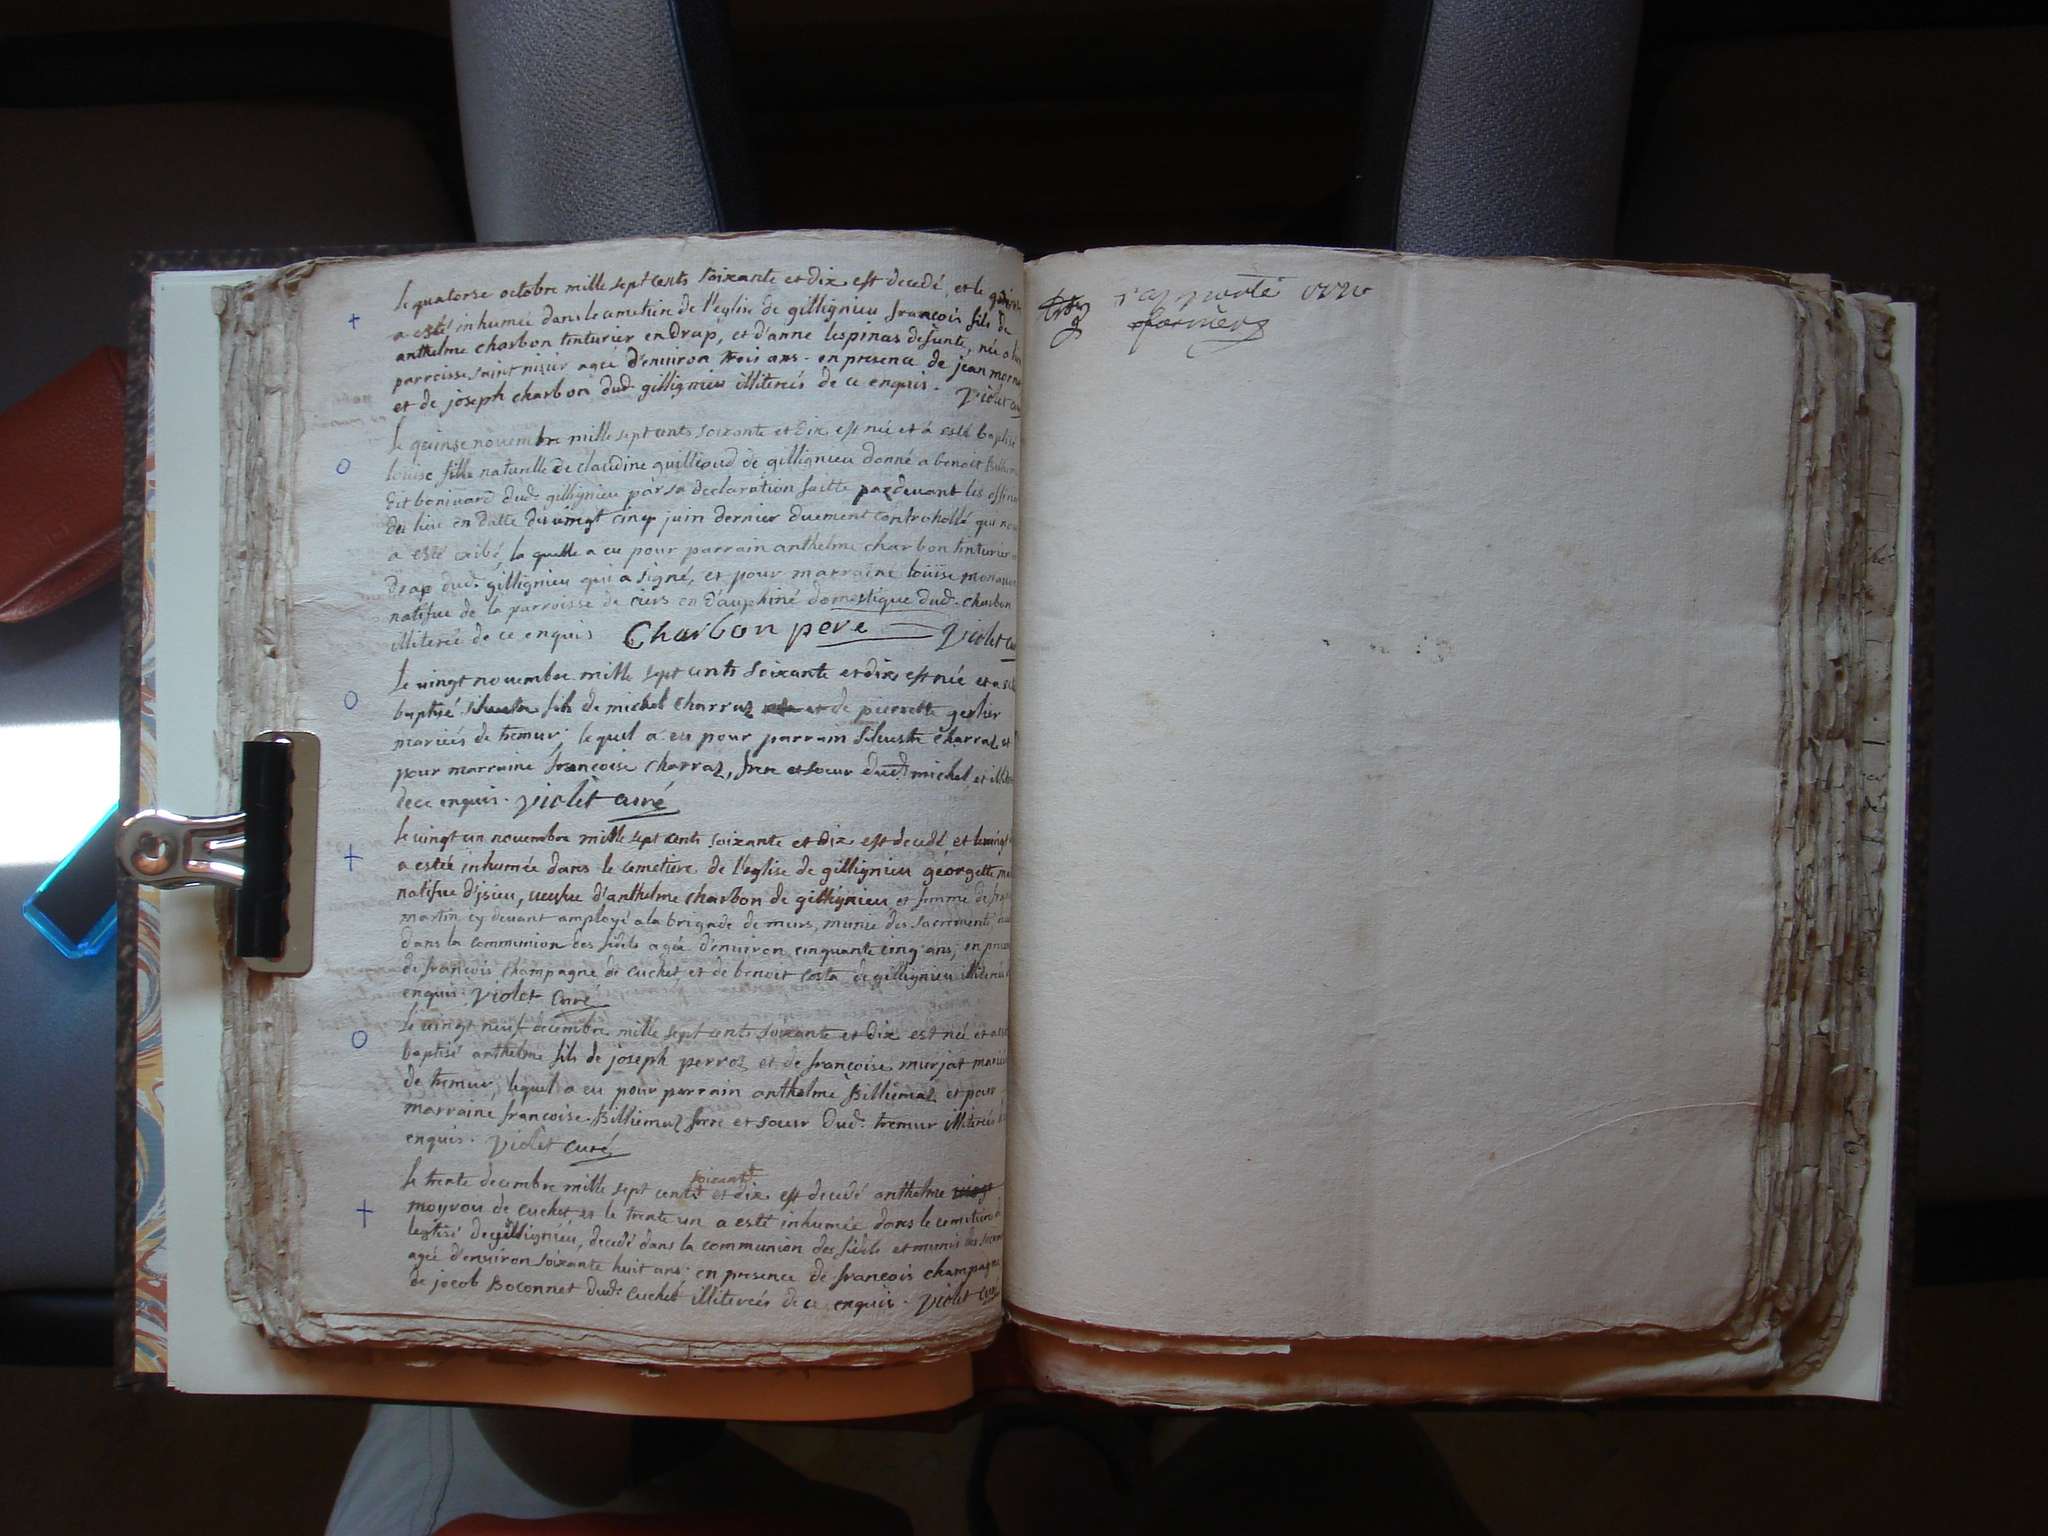 le quatorse octobre mille sept cents soixante et dix est decedé, et le quinse
a esté inhumée dans le cemetiere de l'eglise de gillignieu françois fils de
anthelme charbon tinturier en drap, et d'anne lespinas defunte, née a
parroisse saint nisier agée d'environ trois ans. en presence de jean
et de joseph charbon dud. gillignieu illiterés de ce enquis. Violet
le quinse novembre mille sept cents soixante et dix est née et à esté baptisé
louise fille naturelle de claudine guillioud de gillignieu donné a benoit
dit bonivard dud. gillignieu par sa declaration faitte pardevant les
du lieu en datte du vingt cinq juin dernier duement controhollé qui
a esté exibé, la quelle a eu pour parrain anthelme charbon tinturier
drap dud. gillignieu qui a signé, et pour marraine loüise
natifue de la parroisse de ciers en d'auphiné domestique dud. charbon
illiterée de ce enquis Charbon pere Violet
Le vingt novembre mille sept cents soixante et dix est née et a
baptisé silvestre fils de michel charraz de pierrette gerlier
mariées de tremur; lequel a eu pour parrain silvestre charraz et
pour marraine françoise charraz, frere et soeur dud. michel, et
de ce enquis. Violet curé
le vingt un novembre mille sept cents soixante et dix est decedé et le vingt
a estée inhumée dans le cemetiere de l'eglise de gillignieu georgette
natifue d'isieu, veufve d'anthelme charbon de gillignieu et femme de
martin cy devant amployé a la brigade de murs, munie des sacrements
dans la communion des fidels agée d'environ cinquante cinq ans; en
de françois champagne de cuchet et de benoit costa de gillignieu
enquis. Violet curé
Le vingt neuf decembre mille sept cents soixante et dix est née et a
baptisé anthelme fils de joseph perroz et de françoise murjat
de tremur, lequel a eu pour parrain anthelme Billiemaz et pour
marraine francoise Billiemaz frere et soeur dud. tremur illiterés
enquis. Violet curé
soixante
le trente decembre mille sept cents et dix est decedé anthelme
moyrou de cuchet et le trente un a esté inhumée dans le cemetiere
leglise de gillignieu, decedé dans la communion des fidels et munis des
agée d'environ soixante huit ans. en presence de françois champagne
de jacob Boconnet dud. cuchet illiterés de ce enquis. Violet curé
rapporté